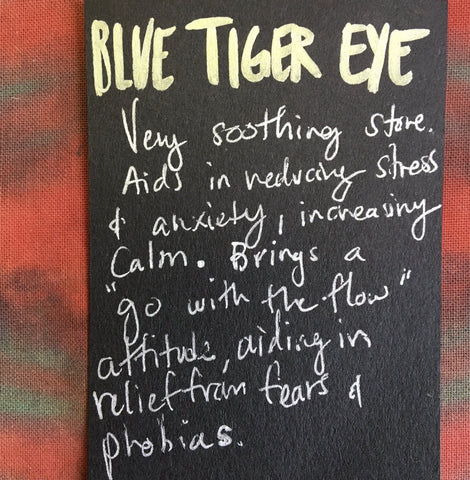 BLUE TIGER EYE
Very soothing stone.
Aids in reducing stress
& anxiety, increasing
Calm. Brings a
"go with the flow"
attitude, aiding in
relief from fears &
phobias.